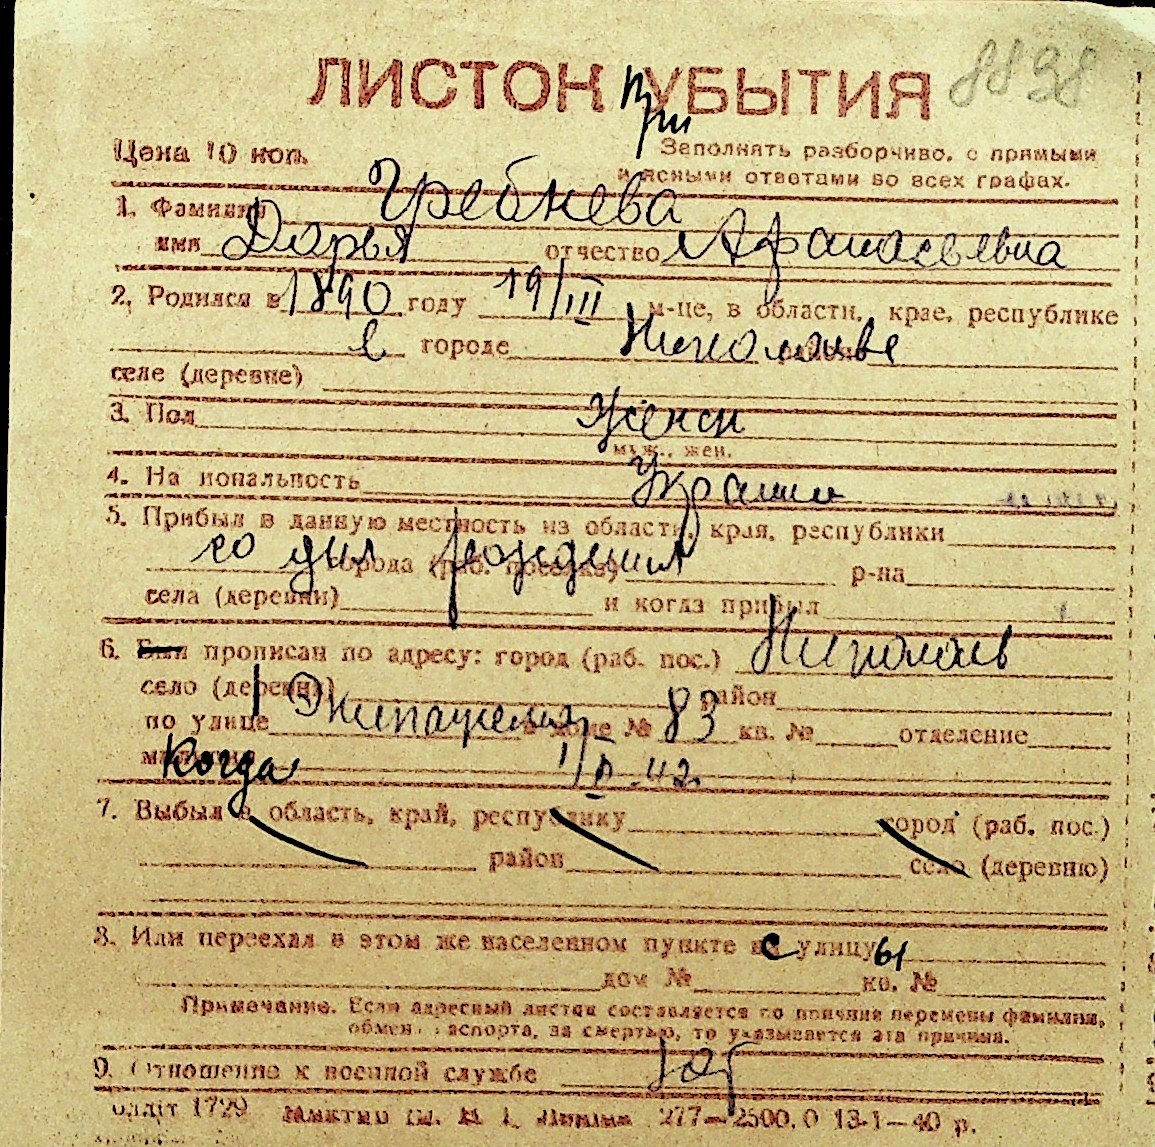 8898
ЛИСТОК при УБЫТИЯ
Цена 10 коп. Заполнять разборчиво, с прямыми
и ясными ответами во всех графах.
1. Фамилия Гребнева
имя Дарья отчество Афанасьевна
2. Родился в 1890 году 19/III м-це, в области, крае, республике
в городе Николаеве
селе (деревне)
3. Пол Женск
муж., жен.
4. Национальность Украин
5. Прибыл в данную местность из области, края, республики
со дня рождения города (раб. поселка) р-на
села (деревни) и когда прибыл
6. Был прописан по адресу: город (раб. пос.) Николаев
село (деревня) район
по улице в доме № 83 кв. № отделение
милиции Когда 1/II-42.
7. Выбыл в область, край, республику город (раб. пос.)
район село (деревню)
8. Или переехал в этом же населенном пункте с улицы
дом № кв. №
Примечание. Если адресный листок составляется по причине перемены фамилии,
обмен паспорта, за смертью, то указывается эта причина.
9. Отношение к военной службе
1729 277—2500.0 13-1—40 р.